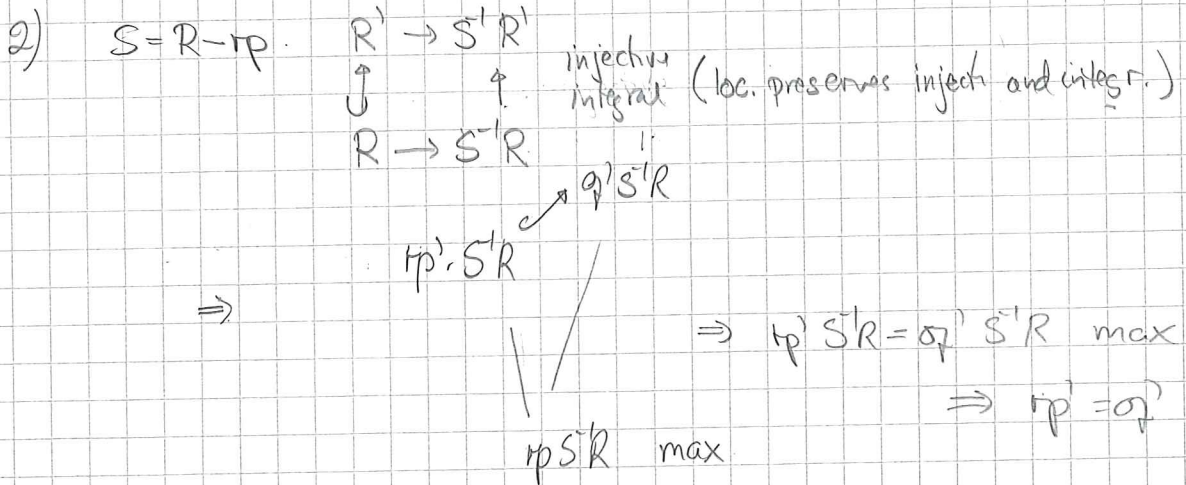 2) S = R - 𝔭. R' → S⁻¹R'
injective
integral (loc. preserves inject and integr.)
R → S⁻¹R
𝔮' S⁻¹R
𝔭'. S⁻¹R
⇒
⇒ 𝔭' S⁻¹R = 𝔮' S⁻¹R max
⇒ 𝔭' = 𝔮'
𝔭 S⁻¹R max